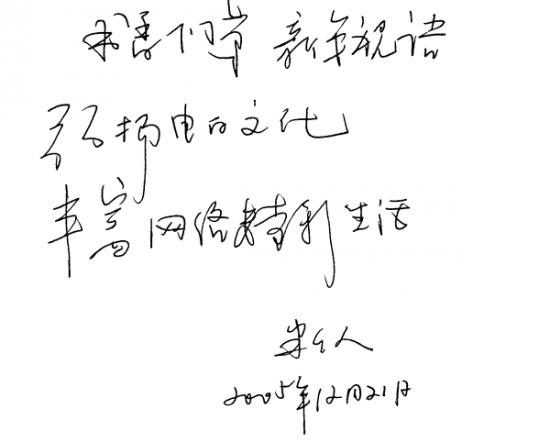 新年祝语
弘扬电白文化
丰富网络精彩生活
人
2005年12月21日